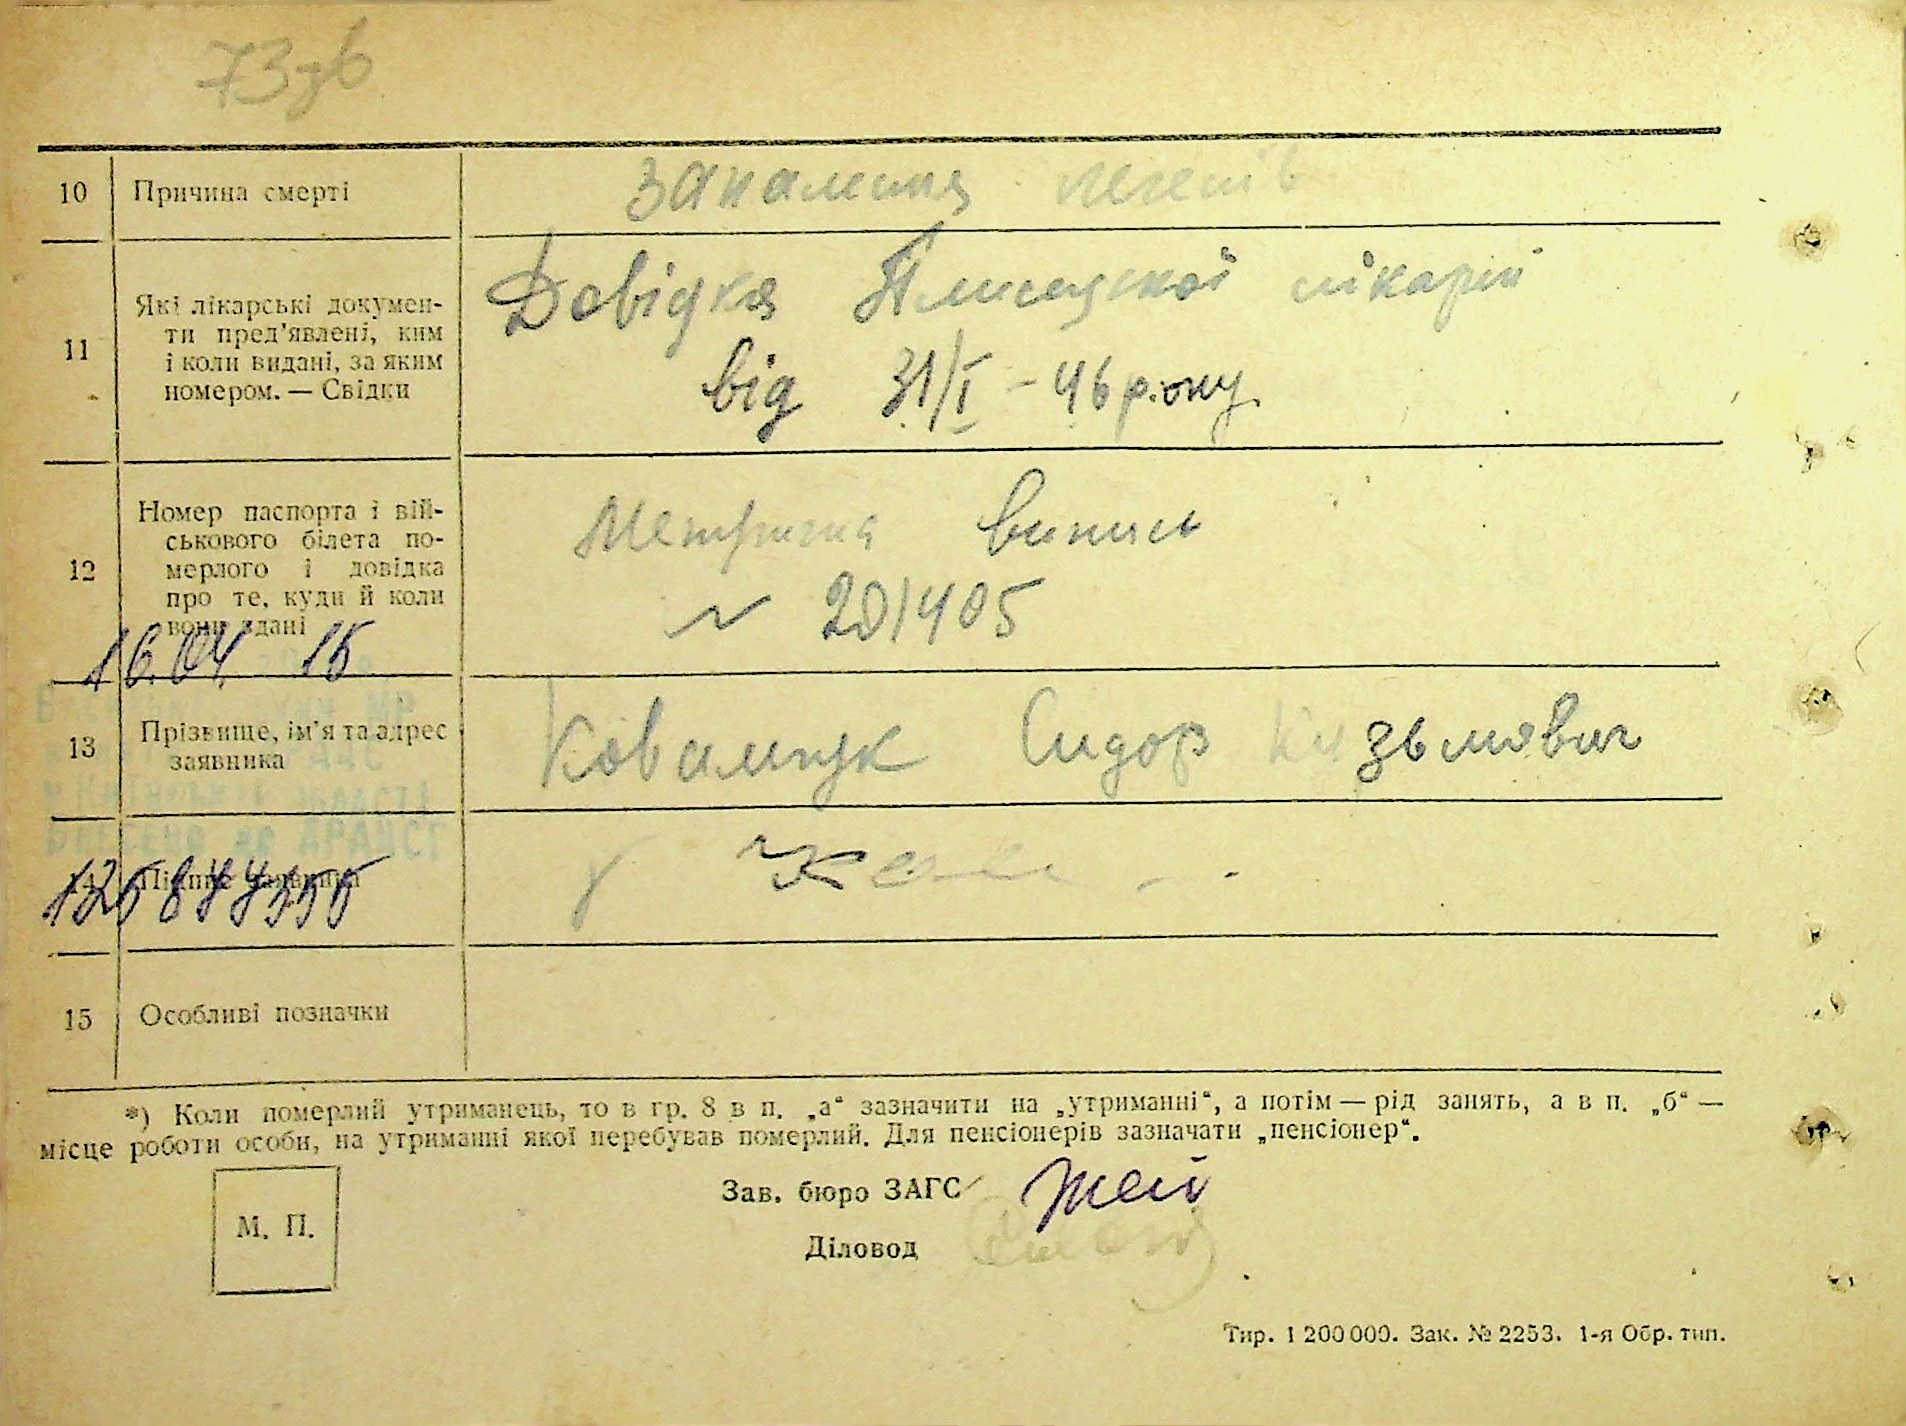 73зв
10 Причина смерті Запалення легенів
11 Які лікарські докумен-
ти пред'явлені, ким
і коли видані, за яким
номером. — Свідки
Довідка лікарні
від 31/I - 46 року
12 Номер паспорта і вій-
ськового білета по-
мерлого і довідка
про те, куди й коли
вони здані
Метрична випись
№ 201405
16.04. 15
13 Прізвище, ім'я та адрес
заявника
Ковальчук Сидор Кузьмович
внесено до ДРАЦСГ
14 Підпис заявника
15 Особливі позначки
*) Коли померлий утриманець, то в гр. 8 в п. „а“ зазначити на „утриманні“, а потім — рід занять, а в п. „б“ —
місце роботи особи, на утриманні якої перебував померлий. Для пенсіонерів зазначати „пенсіонер“.
Зав. бюро ЗАГС
М. П.
Діловод
Тир. 1 200 000. Зак. № 2253. 1-я Обр. тип.